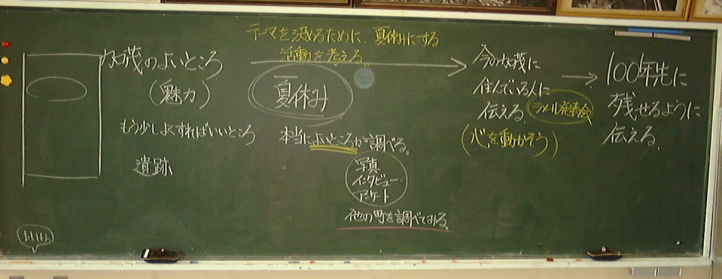 テーマを決めるために、夏休みにする
活動を考える。
加茂のよいところ
(魅力)
もう少しよくすればいいところ
遺跡
夏休み
本当によいところか調べる。
写真
インタビュー
アンケート
他の町を調べてみる
今の加茂に
住んでいる人に
伝える
ラメール発表会
(心を動かそう)
100年先に
残せるように
伝える